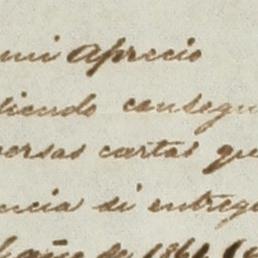 mi Aprecio
diendo consegu
versas cartas que
ncia di entreg
año de 1861